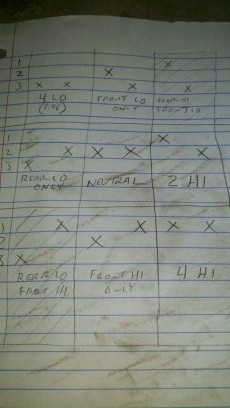 1 X
2 X
3 X X X X
4 LO FRONT LO REAR HI
(2.46) ONLY FRONT LO
1 X
2 X X X X
3 X
REAR LO NEUTRAL 2 HI
ONLY
1 X X X X
2 X
3 X
REAR LO FRONT HI 4 HI
FRONT HI ONLY